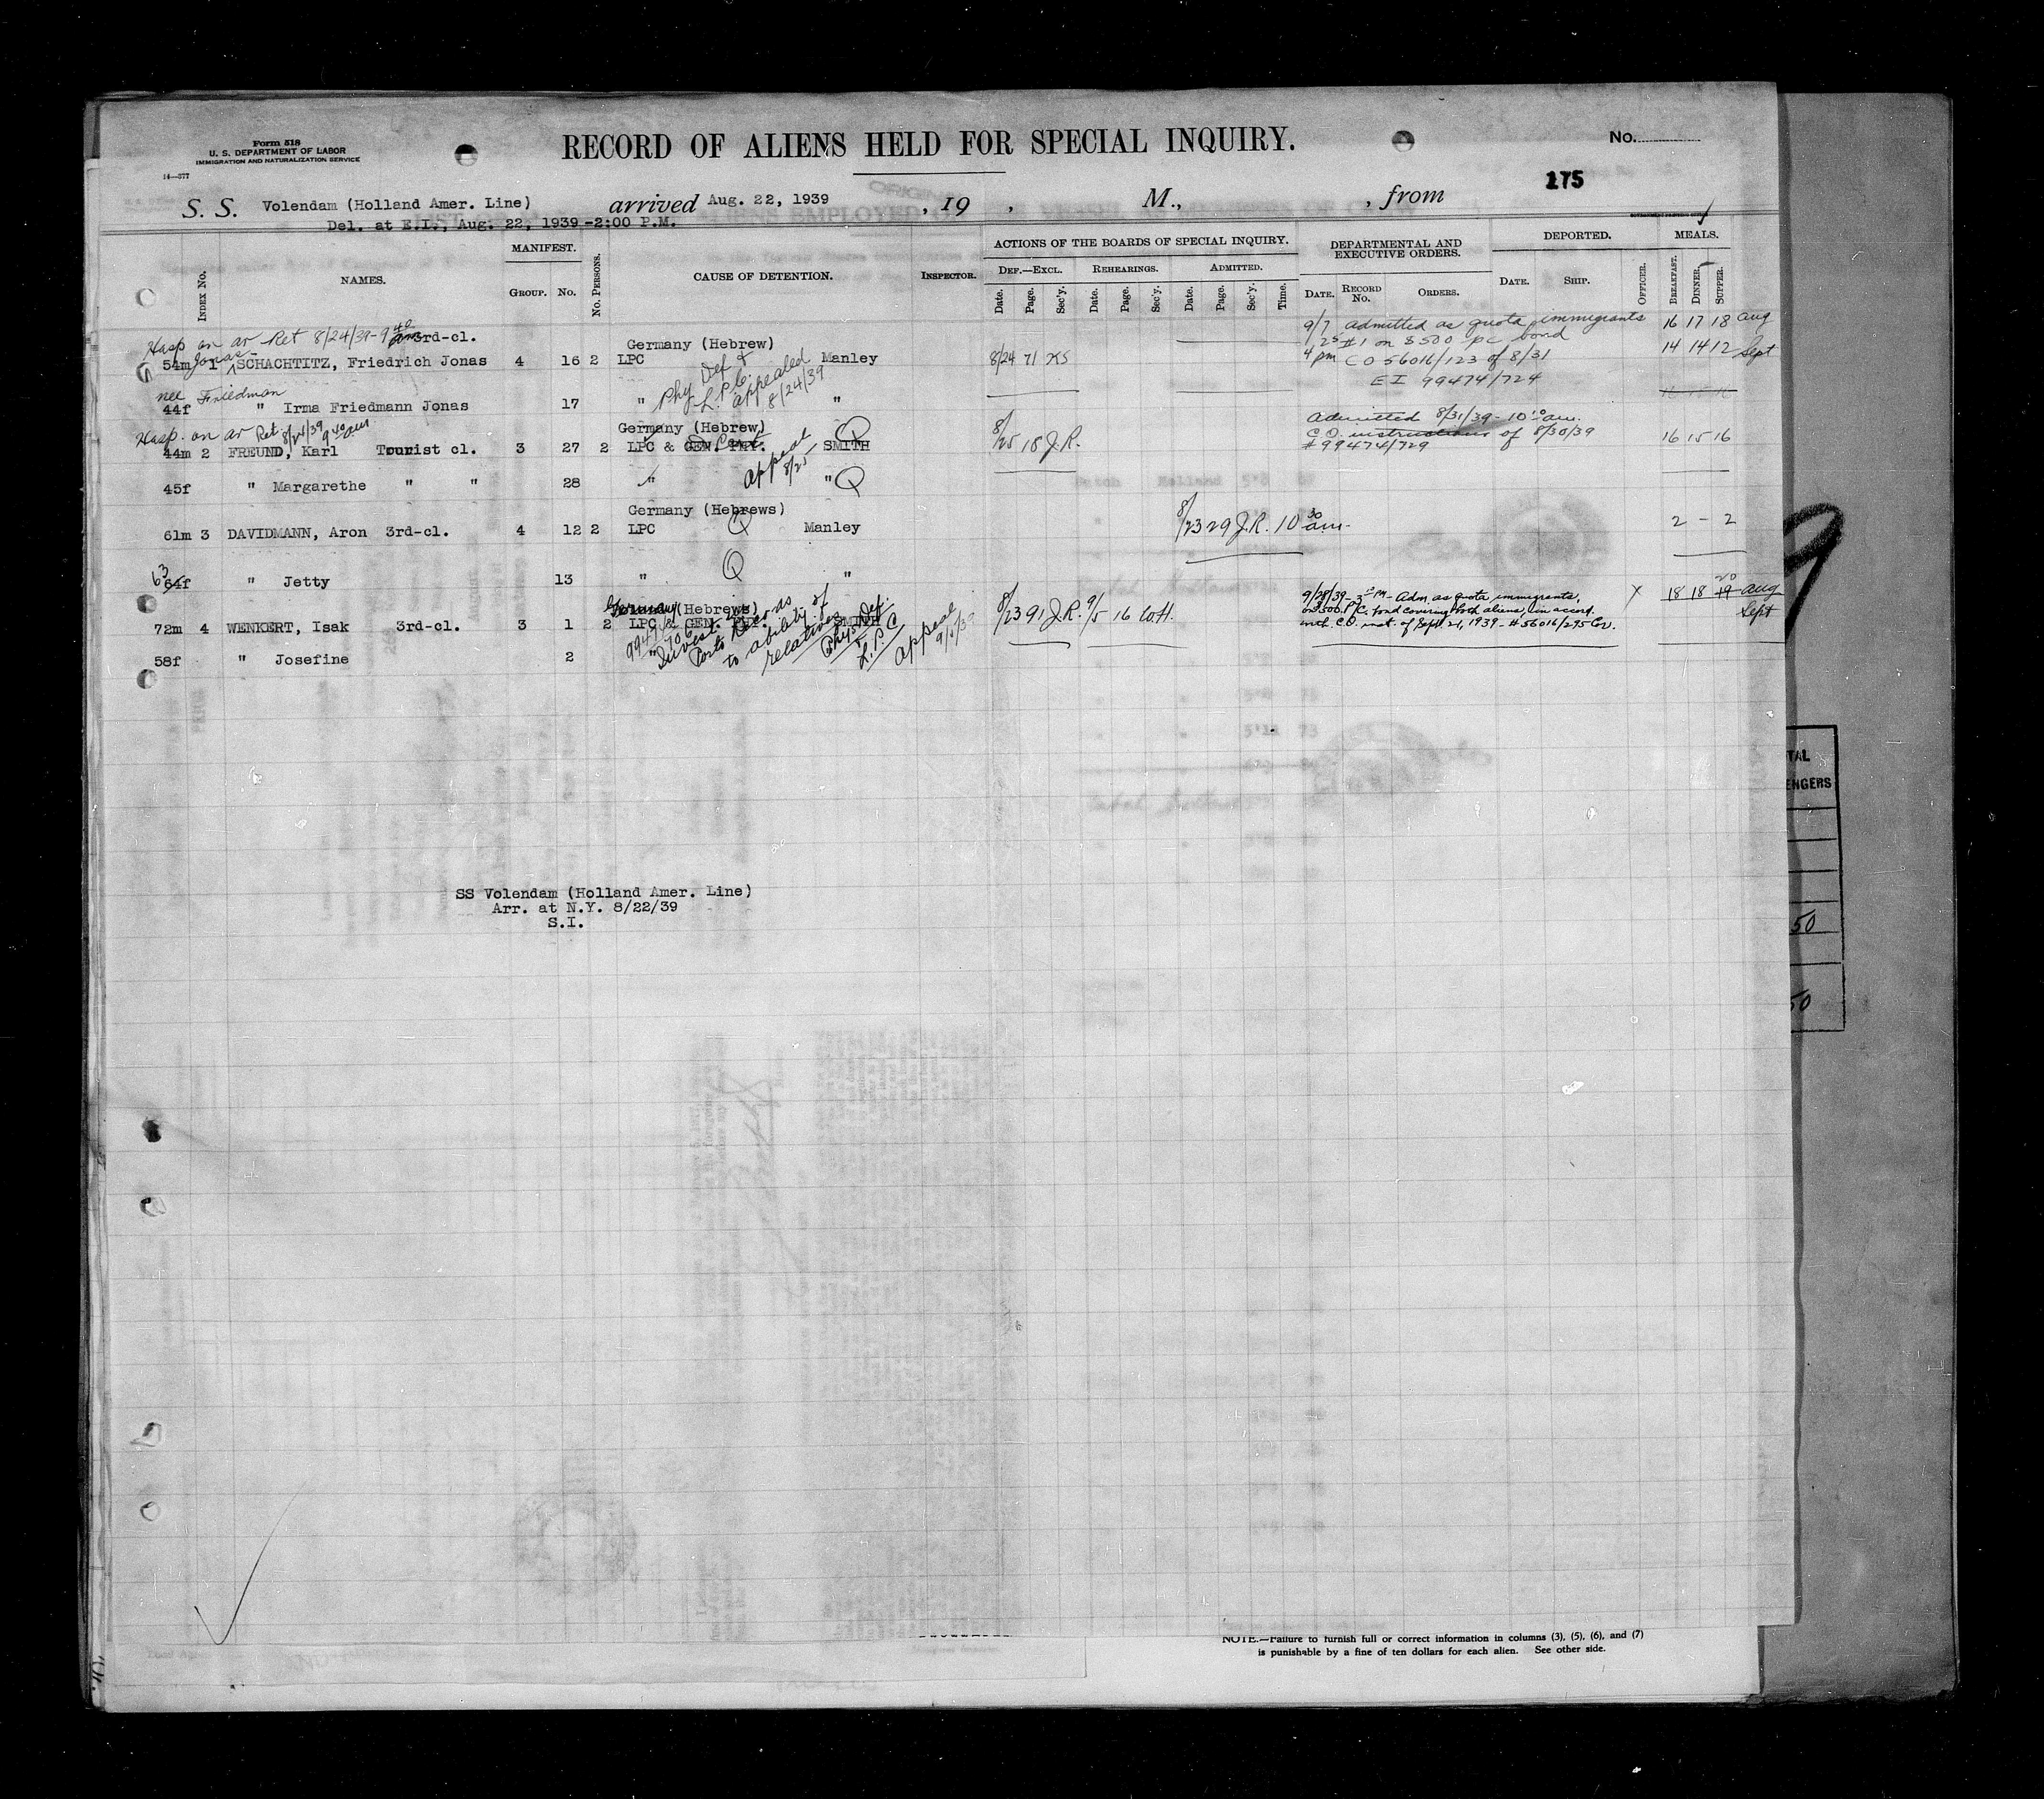 Form 518
U. S. DEPARTMENT OF LABOR
IMMIGRATION AND NATURALIZATION SERVICE
14—577
RECORD OF ALIENS HELD FOR SPECIAL INQUIRY.
No.
175
S. S. Volendam (Holland Amer. Line) arrived Aug. 22, 1939 , 19 , M., , from
Del. at E.I., Aug. 22, 1939-2:00 P.M.
INDEX NO. NAMES. MANIFEST. GROUP. NO. NO. PERSONS. CAUSE OF DETENTION. INSPECTOR. ACTIONS OF THE BOARDS OF SPECIAL INQUIRY. DEPARTMENTAL AND EXECUTIVE ORDERS. DEPORTED. MEALS.
DEF.—EXCL. REHEARINGS. ADMITTED.
Date. Page. Sec'y. Date. Page. Sec'y. Date. Page. Sec'y. Time. DATE. RECORD NO. ORDERS. DATE. SHIP. OFFICER. BREAKFAST. DINNER. SUPPER.
Hosp on ar Ret 8/24/39-9 40 am 3rd-cl. Germany (Hebrew) 9/7 admitted as quota immigrants 16 17 18 Aug
54m Jonas- 1 SCHACHTITZ, Friedrich Jonas 4 16 2 LPC Manley 8/24 71 KS
#1 on $500 pc bond 14 14 12 Sept
4 pm CO 56016/123 of 8/31
EI 99474/724
Phy Def &
L.P.C.
appealed
8/24/39
nee Friedman
44f " Irma Friedmann Jonas 17 " "
Hosp. on ar Ret 8/24/39 9 40 am Germany (Hebrew) Admitted 8/31/39-10 10 am.
44m 2 FREUND, Karl Tourist cl. 3 27 2 LPC & GEN. PHY. SMITH Q 8/25 18 J.R. C.O. instructions of 8/30/39 16 15 16
#99474/729
Appeal 8/25
45f " Margarethe " " 28 " " Q
Germany (Hebrews)
61m 3 DAVIDMANN, Aron 3rd-cl. 4 12 2 LPC Q Manley 8/23 29 J.R. 10 30 am. 2 - 2
63 64f " Jetty 13 " Q "
Germany (Hebrews) 9/28/39-3 PM- Adm. as quota immigrants, 18 18 19 20 Aug
72m 4 WENKERT, Isak 3rd-cl. 3 1 2 LPC & GEN. PHY. SMITH 8/23 91 J.R. 9/5 16 W.H. on $500. P.C. bond covering both aliens, in accord. Sept
with C.O. inst. of Sept. 21, 1939-#56016/295 Cov.
58f " Josefine 2 "
99474/706
Invest.
to ability of
relatives
Phys. Def.
&
L.P.C
Appeal
SS Volendam (Holland Amer. Line)
Arr. at N.Y. 8/22/39
S.I.
TAL
ENGERS
50
50
NOTE.—Failure to furnish full or correct information in columns (3), (5), (6), and (7)
is punishable by a fine of ten dollars for each alien. See other side.